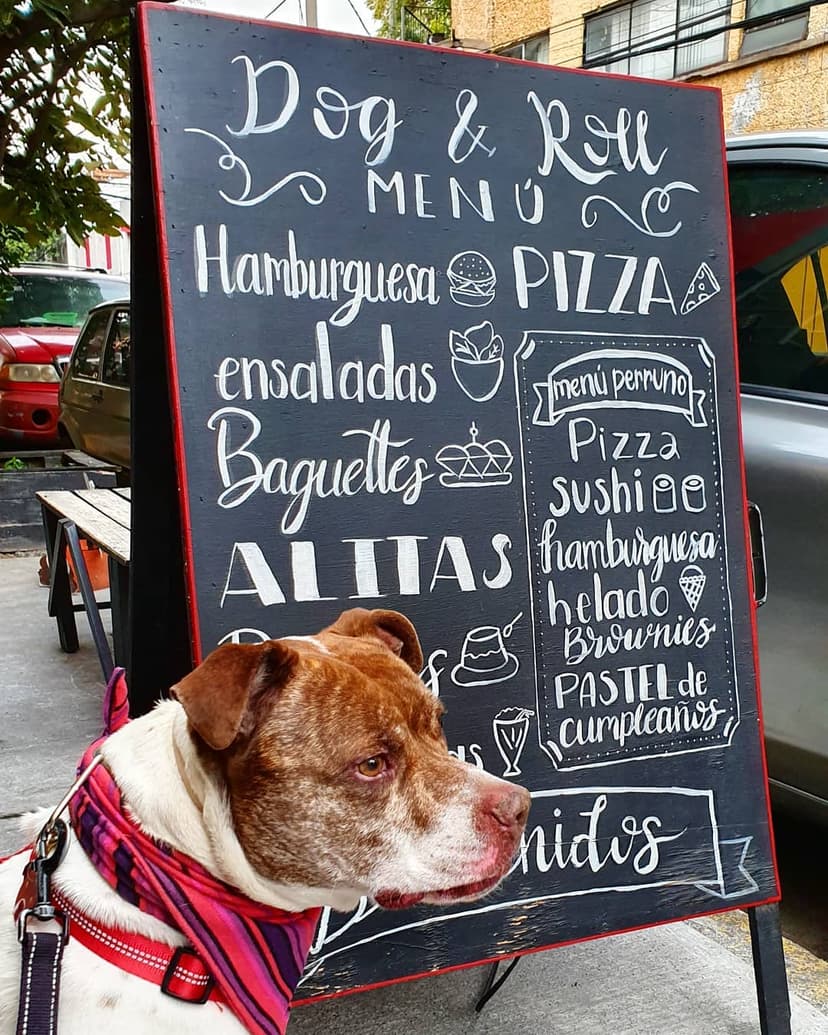 Dog & Roll
MENÚ
Hamburguesa
ensaladas
Baguettes
ALITAS
PIZZA
menú perruno
Pizza
sushi
hamburguesa
helado
Brownies
PASTEL de
cumpleaños